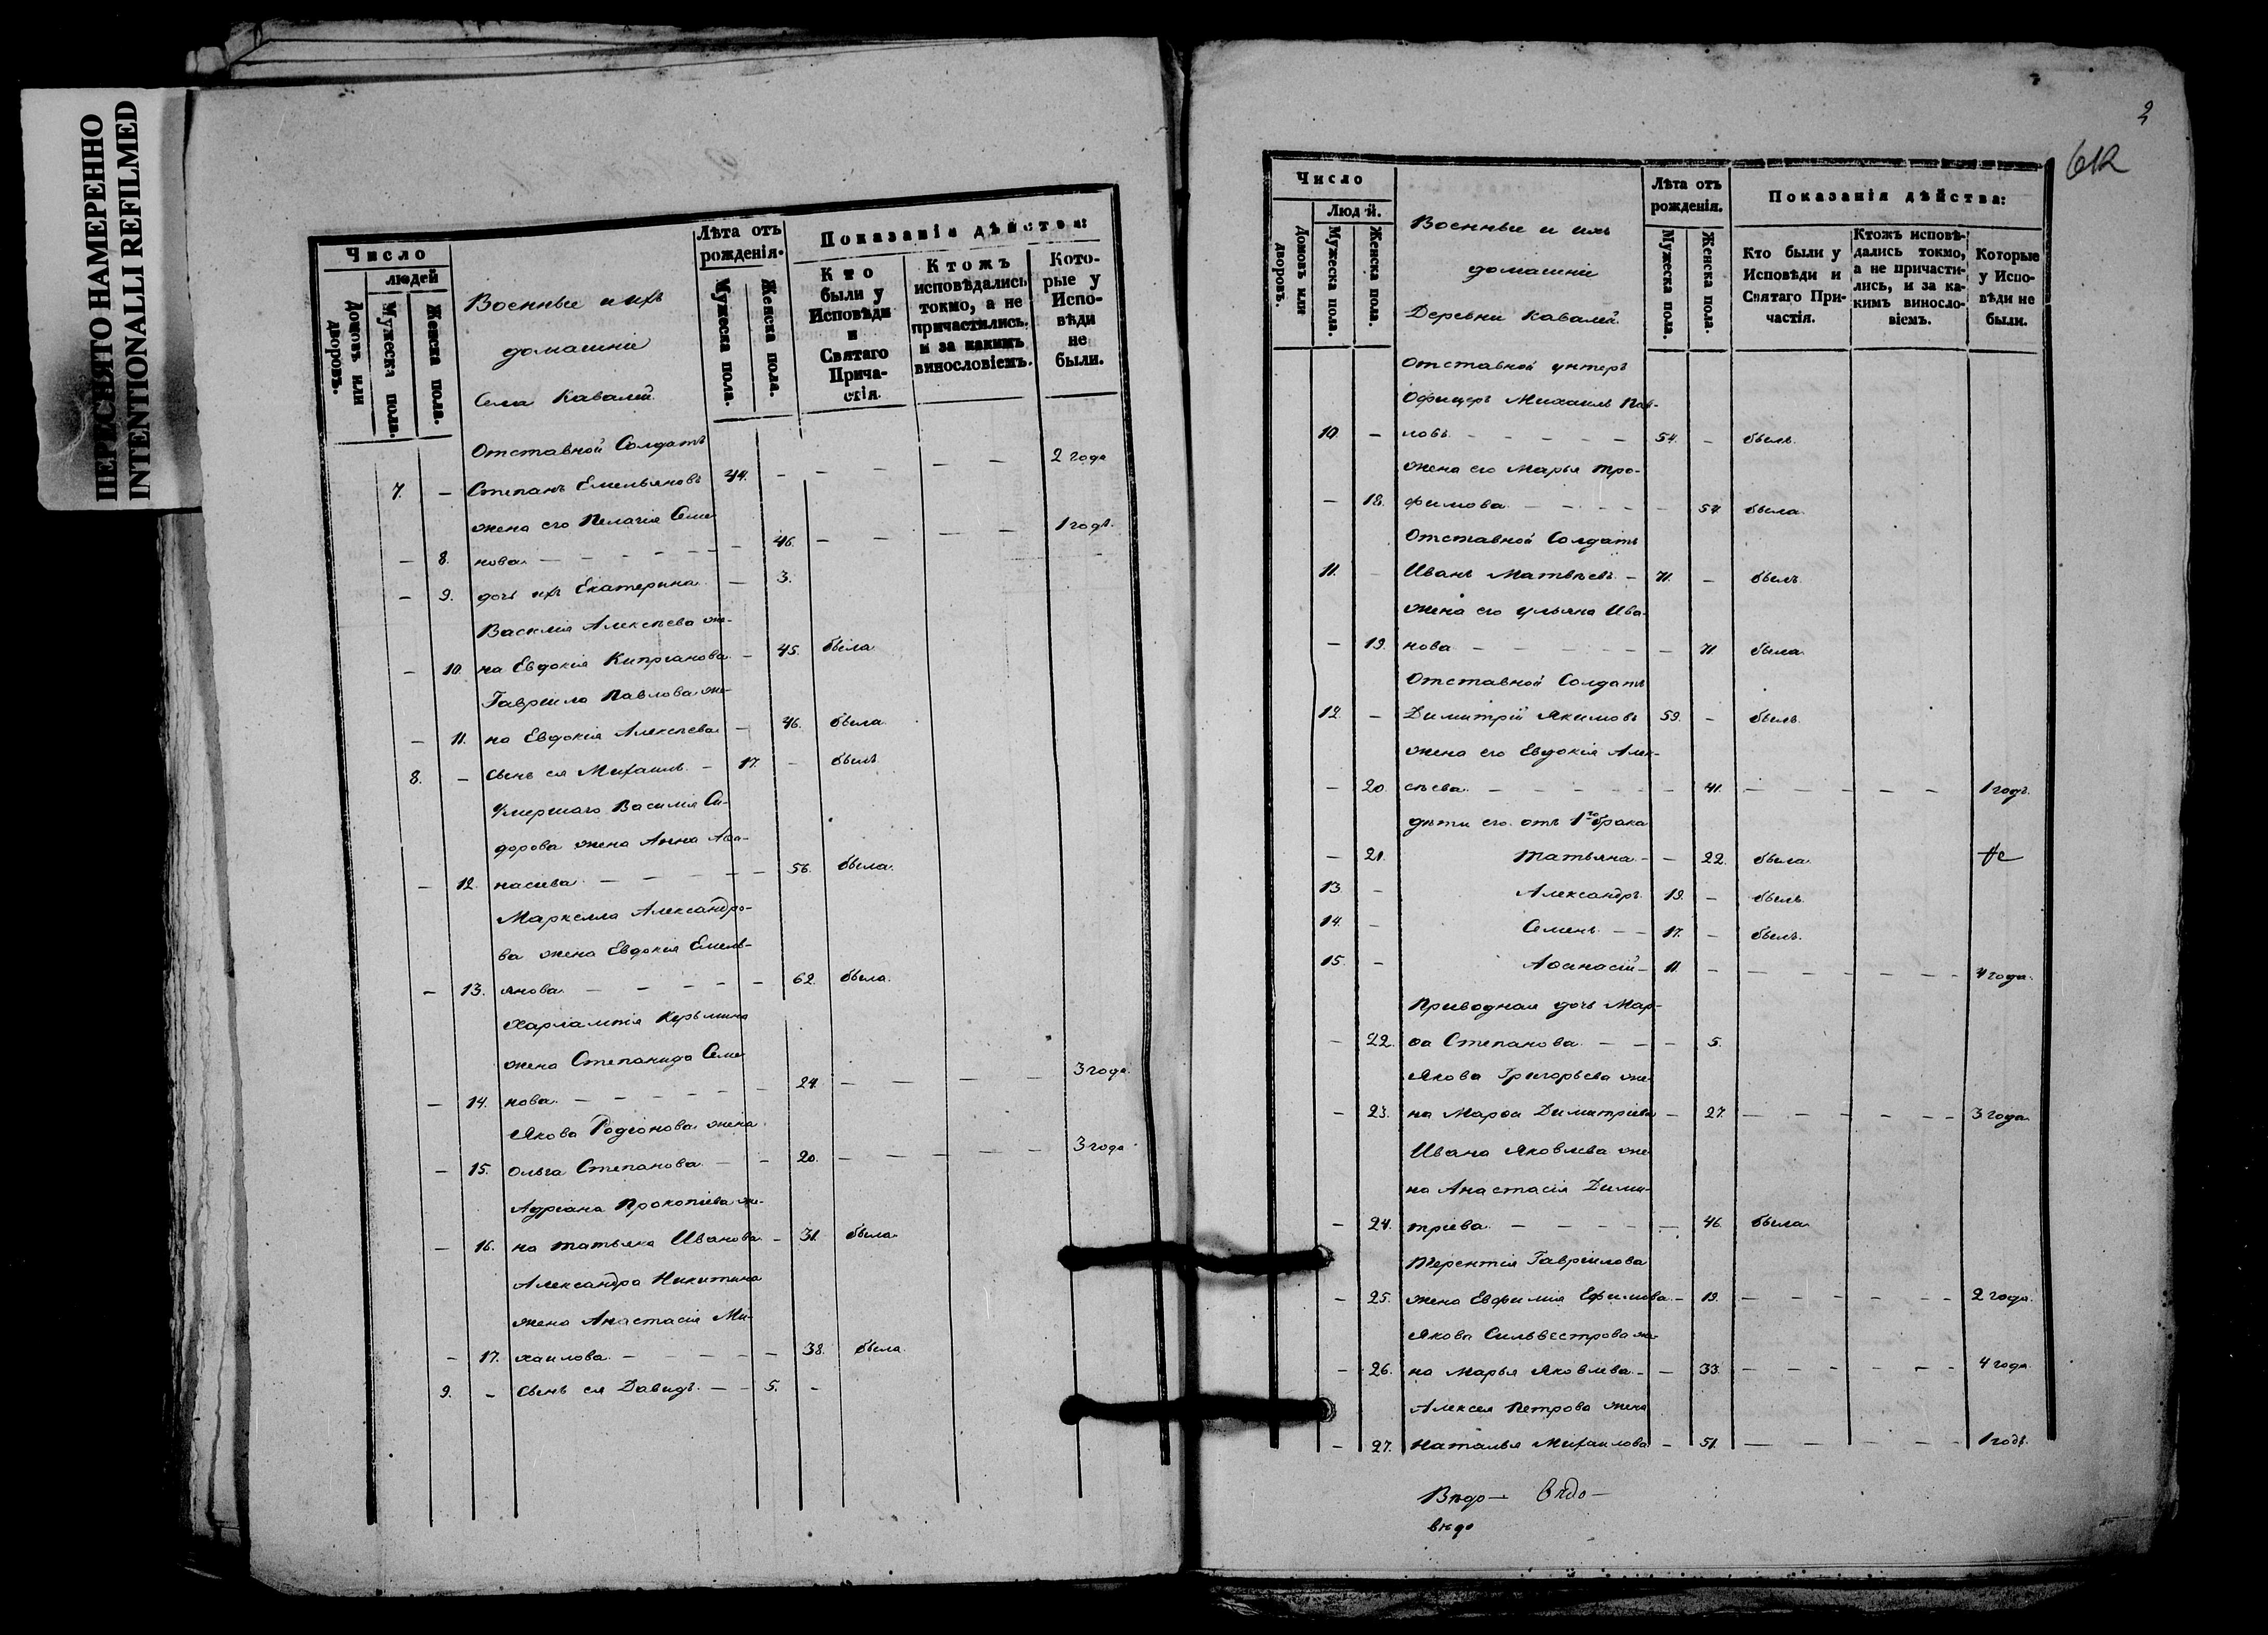 ПЕРЕСНЯТО НАМЕРЕННО
INTENTIONALLI REFILMED
Число
людей
Домовъ или дворовъ.
Мужеска пола.
Женска пола.
Военные и ихъ
домашніе
Села Кавалей
Лѣта отъ рожденія.
Мужеска пола.
Женска пола.
Показанія дѣйства:
Кто были у Исповѣди и Святаго Причастія.
Ктожъ исповѣдались токмо, а не причастились, и за какимъ винословіемъ.
Которые у Исповѣди не были.
Отставной Солдатъ
7. – Степанъ Емельяновъ 44. – – – – – 2 года
жена его Пелагія Семе
– 8. нова – – – – – – 46. – – – – 1 годъ.
– 9. дочь ихъ Екатерина – 3.
Василія Алексѣева же-
– 10. на Евдокія Кипріанова – 45. была
Гавріила Павлова же-
– 11. на Евдокія Алексѣева – 46. была
8. – Сынъ ея Михаилъ – 17. – былъ
Умершаго Василія Си-
дорова жена Анна Аѳа-
– 12. насіева – – – – – 56. была.
Маркелла Александро-
ва жена Евдокія Емель-
– 13. янова – – – – – 62. была.
Харлампія Керьмина
жена Степанида Семе
– 14. нова – – – – – 24. – – – – 3 года.
Якова Родіонова жена
– 15. Ольга Степанова – – 20. – – – – – 3 года
Адріана Прокопіева же-
– 16. на Татьяна Иванова – 31. была
Александра Никитина
жена Анастасія Ми-
– 17. хаилова – – – – – 38. была
9. – Сынъ ея Давидъ – – 5. –
2
612
Число
Людей.
Домовъ или дворовъ.
Мужеска пола.
Женска пола.
Военные и ихъ
домашніе
Деревни Кавалей.
Лѣта отъ рожденія.
Мужеска пола.
Женска пола.
Показанія дѣйства:
Кто были у Исповѣди и Святаго Причастія.
Ктожъ исповѣдались токмо, а не причастились, и за какимъ винословіемъ.
Которые у Исповѣди не были.
Отставной унтеръ
Офицеръ Михаилъ Пав-
10. – ловъ – – – – – 54. – былъ.
жена его Марья Тро-
– 18. фимова – – – – – 54 была.
Отставной Солдатъ
11. – Иванъ Матвѣевъ – 71. – былъ.
жена его Ульяна Ива-
– 19. нова – – – – – – 71 была.
Отставной Солдатъ
12. – Димитрій Якимовъ 59. – былъ.
жена его Евдокія Алек-
– 20. сѣева – – – – – – 41. – – – – – 1 годъ.
дѣти его отъ 1го брака
– 21. Татьяна – – 22. была.
13. – Александръ 19. – былъ.
14. – Семенъ – – 17. – былъ.
15. – Аѳанасій – 11. – – – – – – – 4 года.
Приводная дочь Мар-
– 22. ѳа Степанова – – – 5.
Якова Григорьева же-
– 23. на Марѳа Димитріева – 27. – – – – – – 3 года.
Ивана Яковлева же
на Анастасія Дими-
– 24. тріева – – – – – 46. была
Терентія Гавріилова
– 25. жена Евфимія Ефимова – 19. – – – – – – 2 года.
Якова Сильвестрова же-
– 26. на Марья Яковлева – – 33. – – – – – – 4 года
Алексея Петрова жена
– 27. Наталья Михаилова – 51. – – – – – – 1 годъ.
Вѣдо– вѣдо–
вѣдо